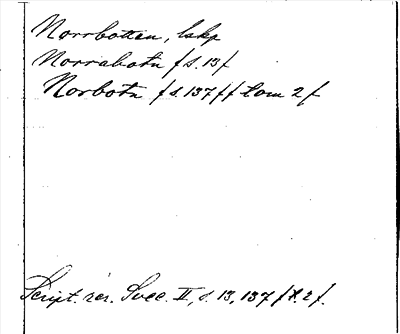 Norrbotten, lskp
Norrabotn /s. 13/
Norbotn /s. 137 // tom 2/
Script. rer. Svec. II, s. 13, 137 /t. 2/.